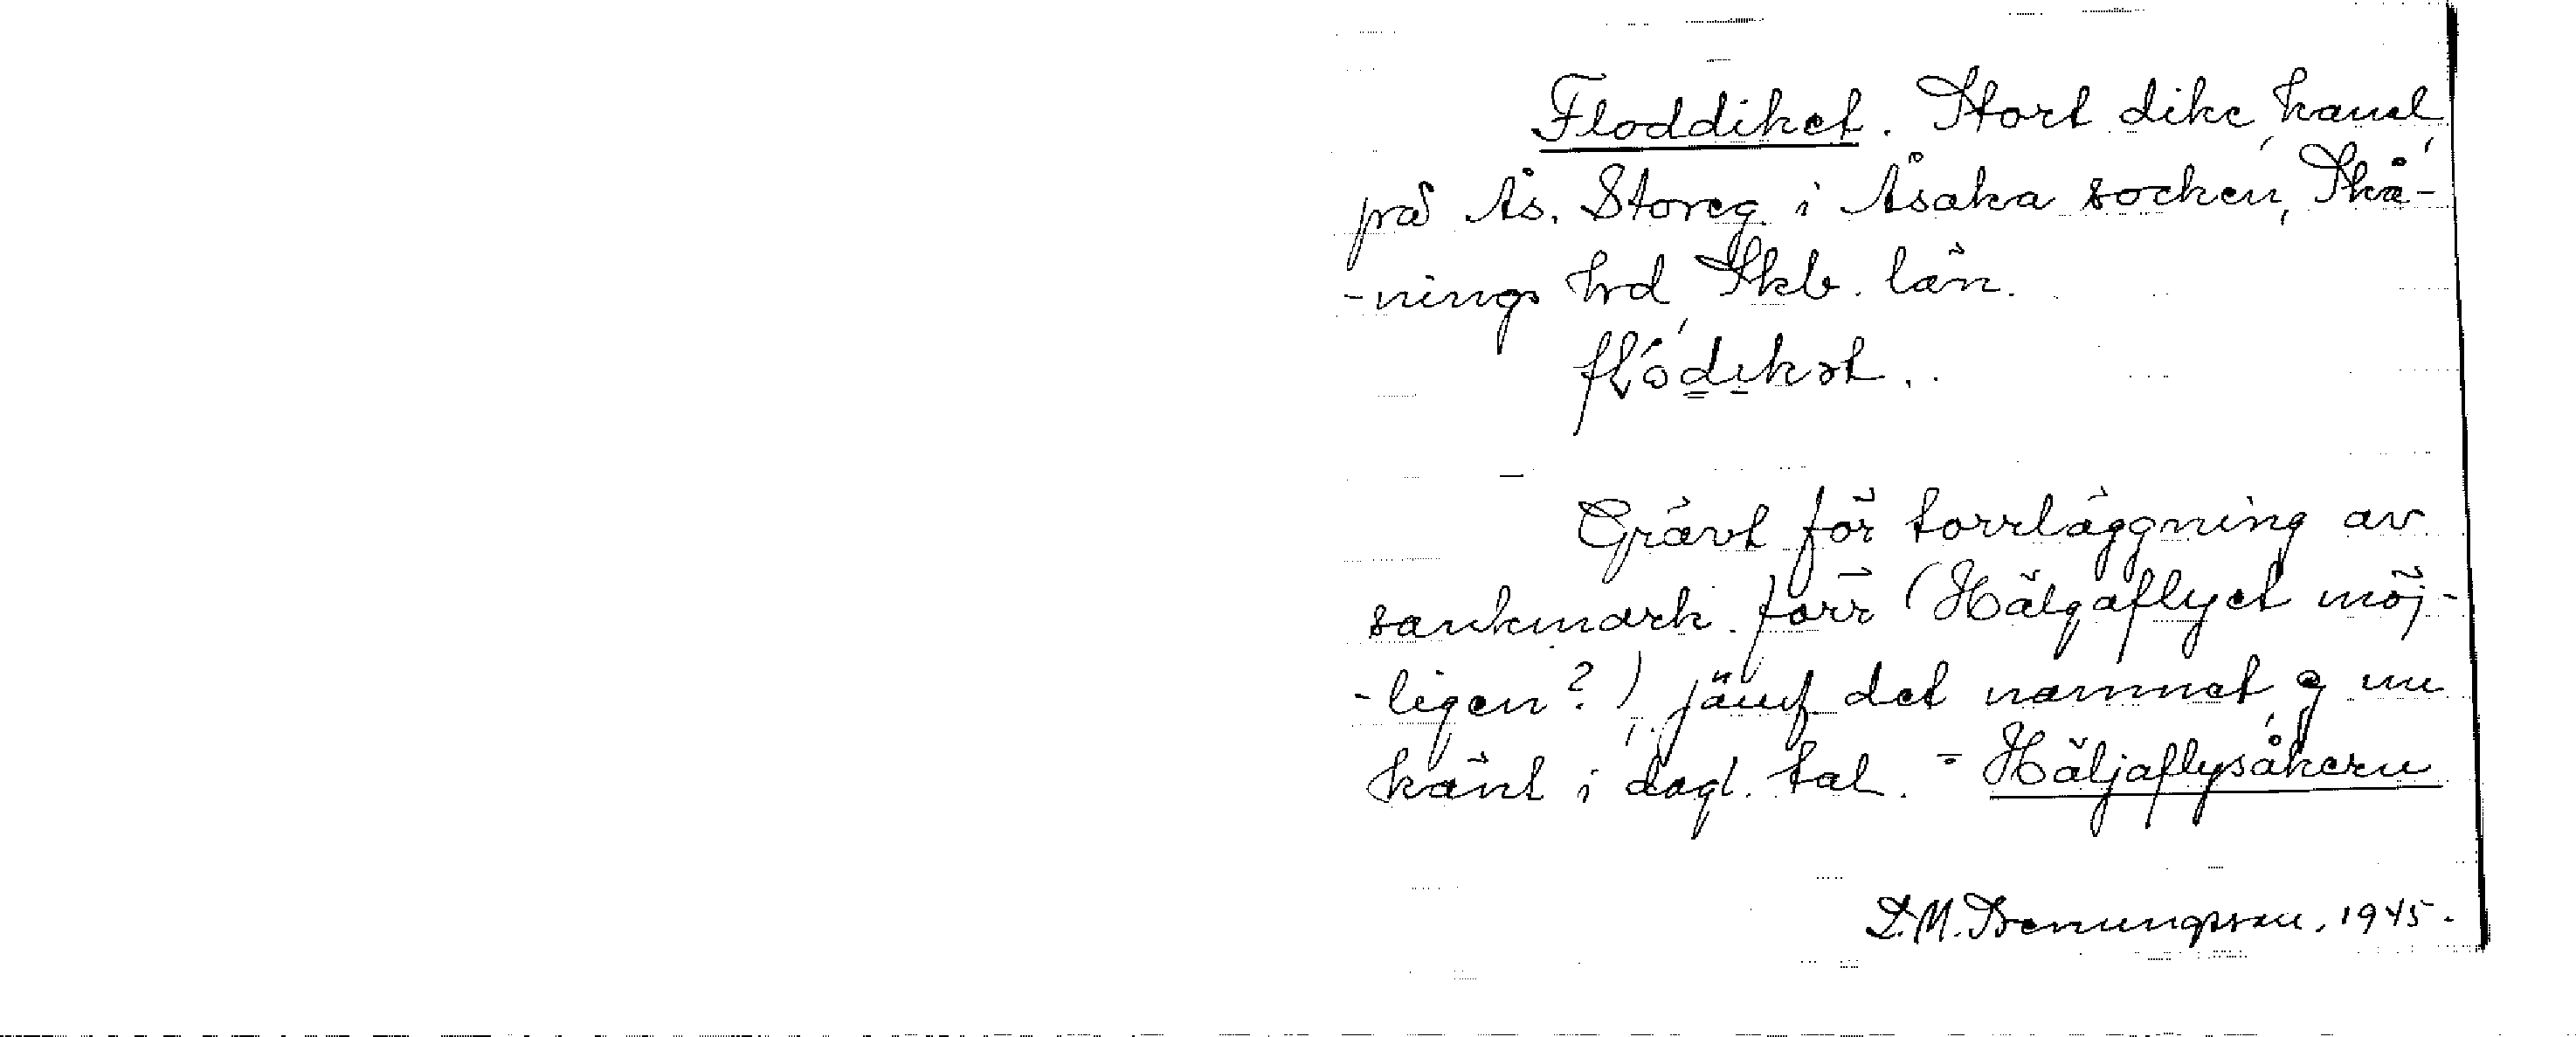 Floddiket. Stort dike, kanal,
på Ås. Storeg. i Åsaka socken, Skå-
-nings hrd, Skb. län.
flódikət.
Grävt för torrläggning av
sankmark förr (Hälgaflyet möj-
-ligen?), jämf det namnet, ej nu
känt i dagl. tal. = Häljaflysåkern
D.M. 1945.